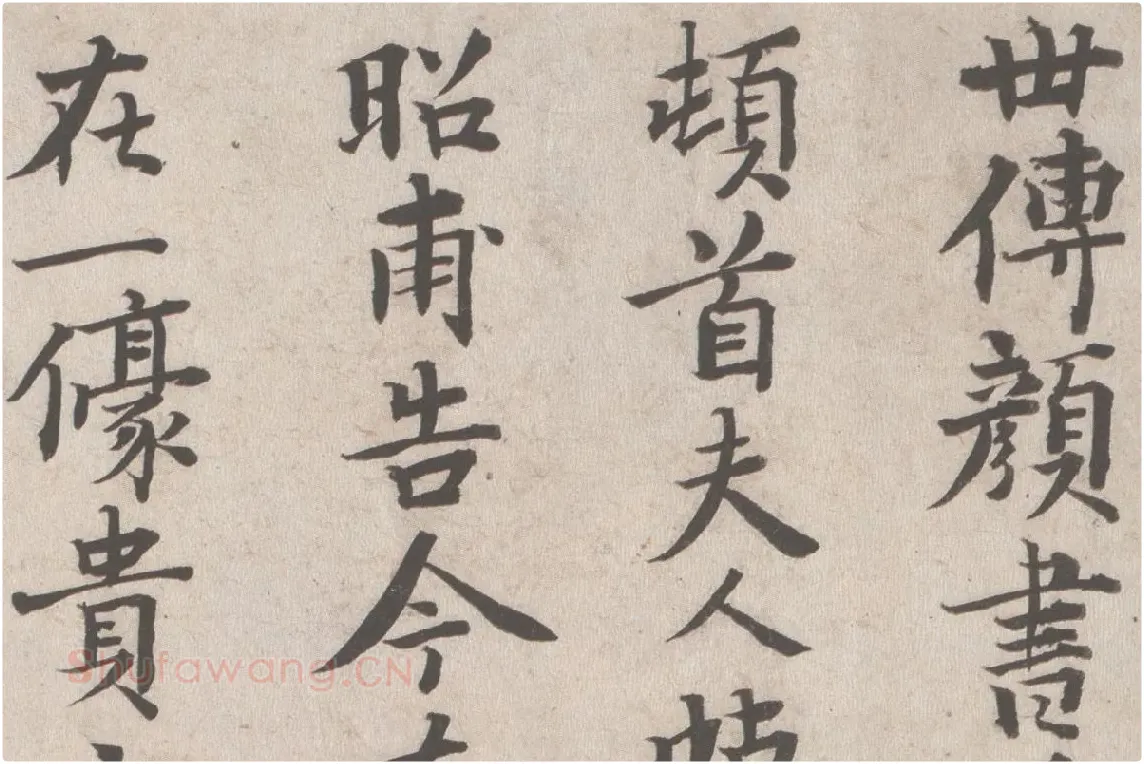 世傳顏書
頓首夫人
昭甫告今
在一㠙貴
Shufawang.CN